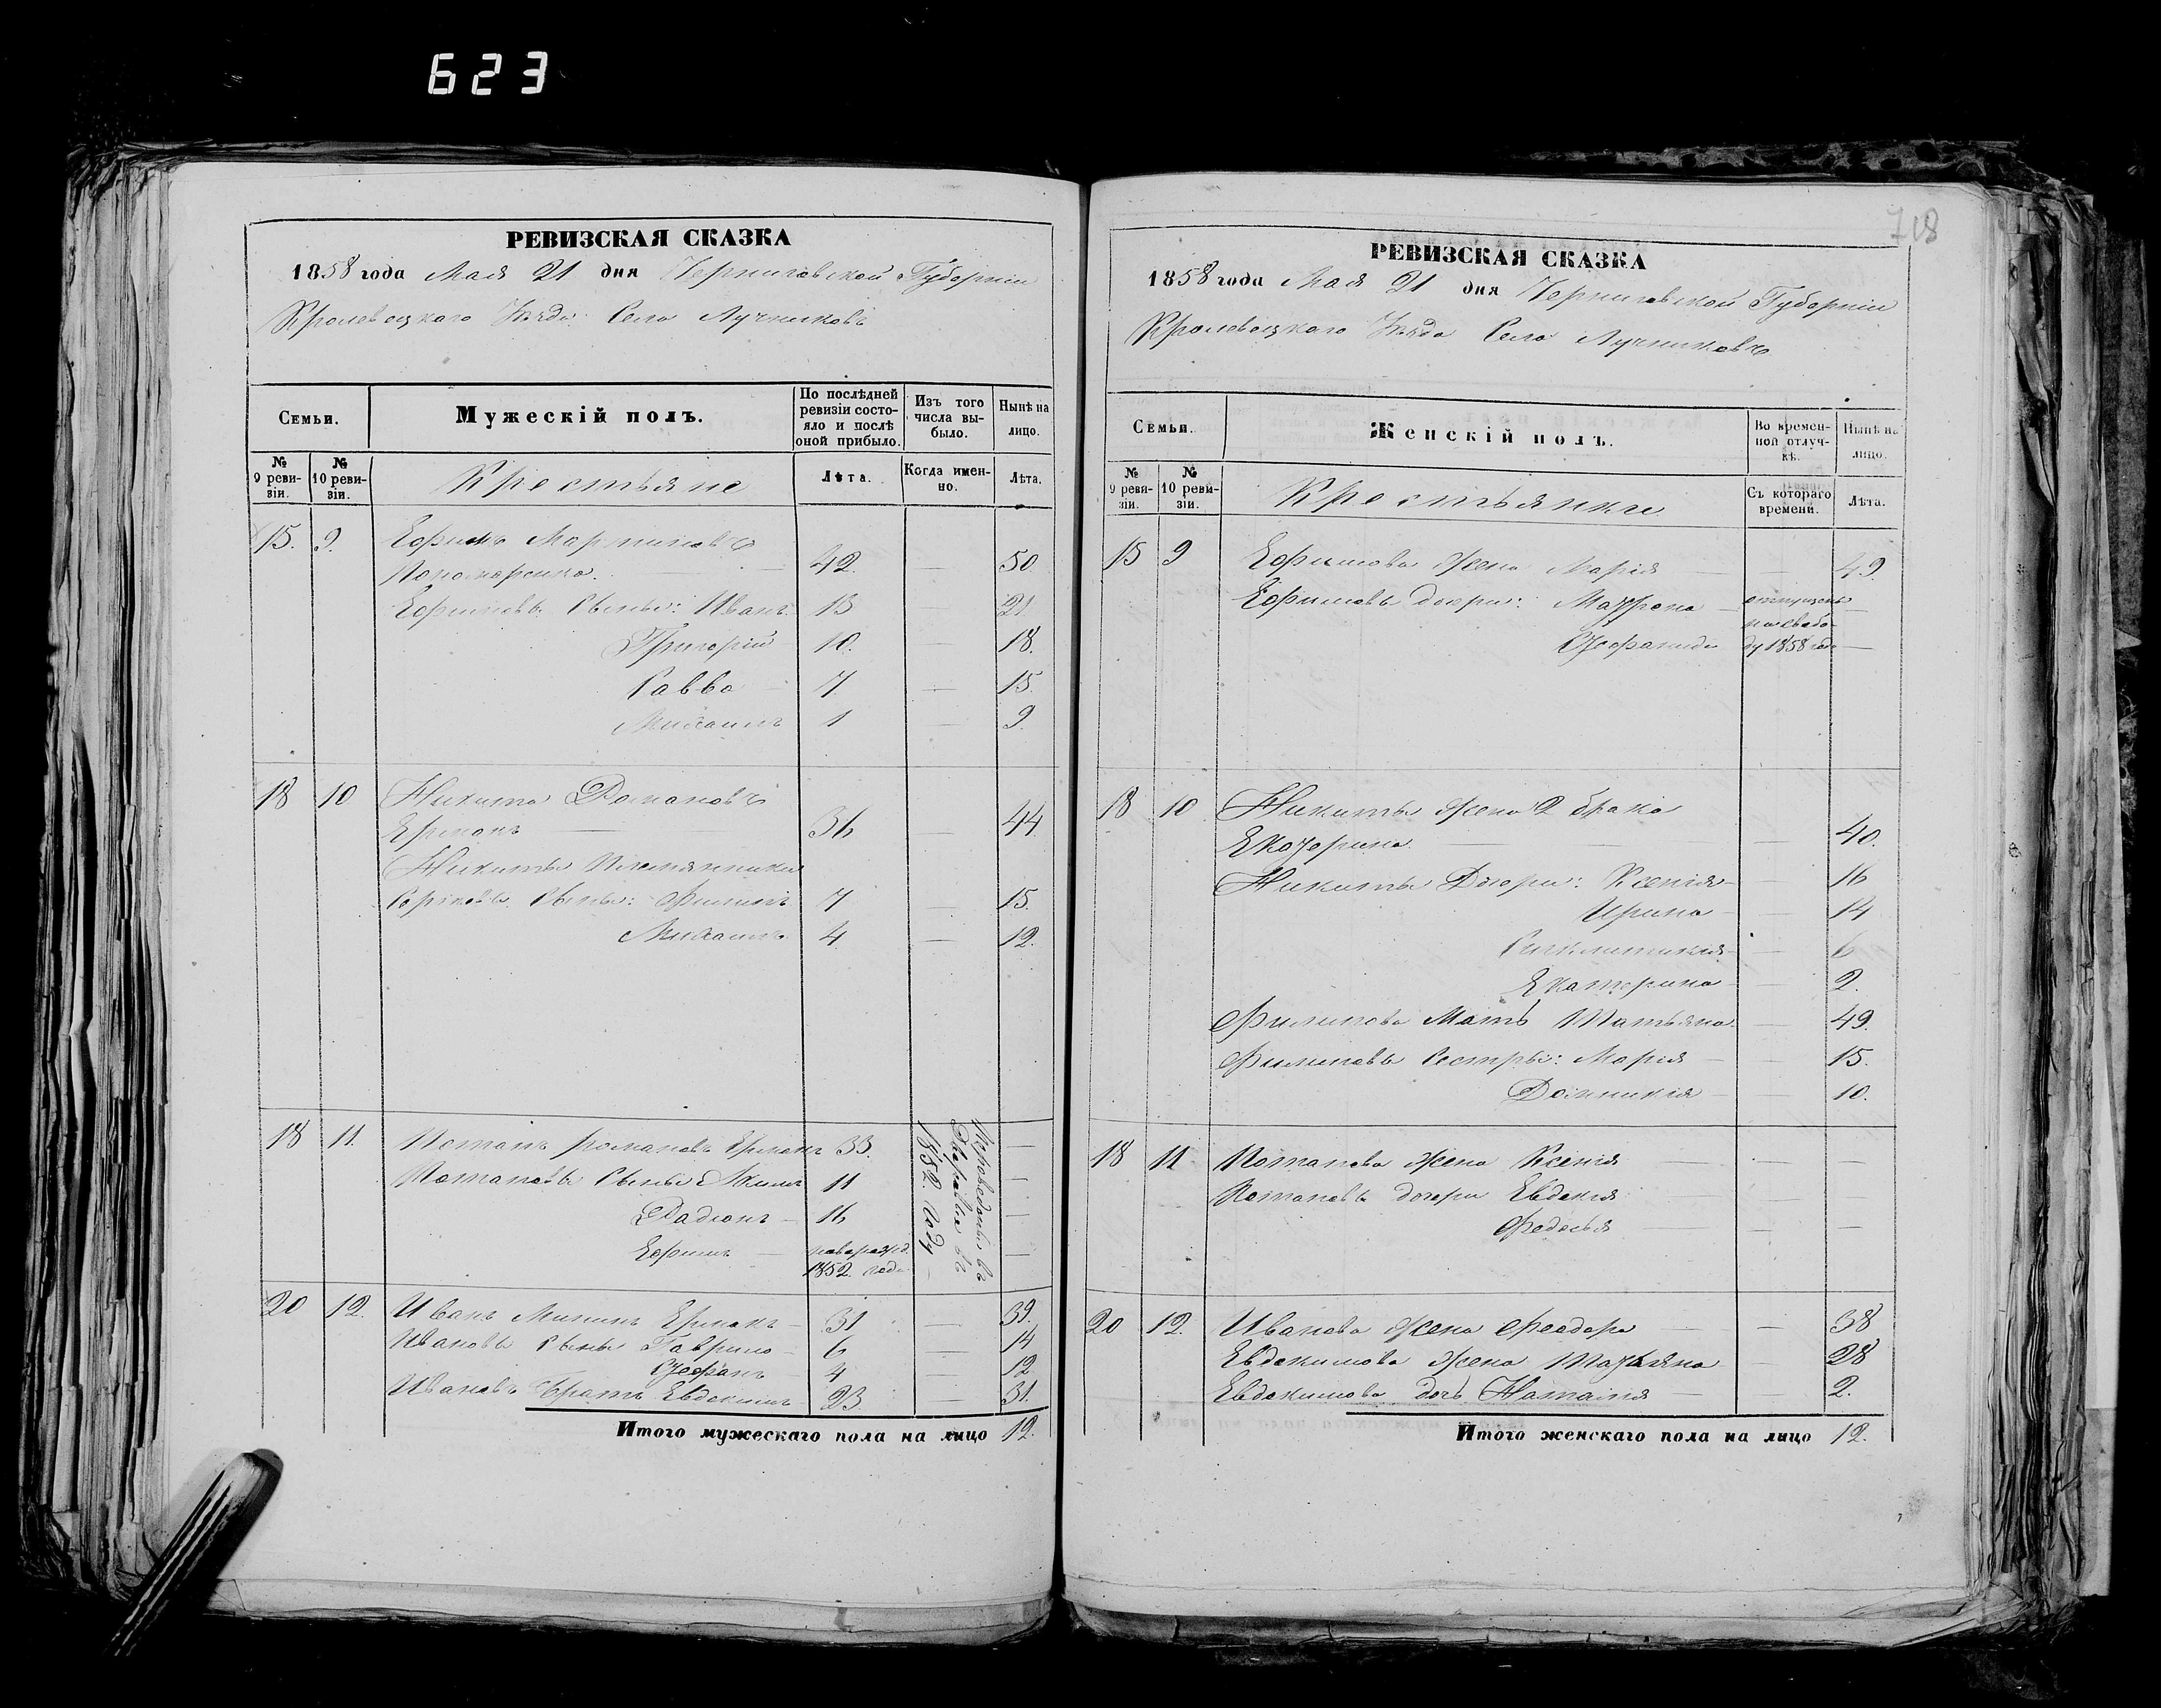 623
РЕВИЗСКАЯ СКАЗКА
1858 года Мая 21 дня Черниговской Губернiи
Кролевецкаго Уѣзда Села Лучниковъ
Семьи. Мужескiй полъ. По послѣдней ревизiи состояло и послѣ оной прибыло. Изъ того числа выбыло. Нынѣ на лицо.
№ 9 ревизiи. № 10 ревизiи. Крестьяне Лѣта. Когда именно. Лѣта.
15. 9. Ефимъ Мартиновъ
Пономаренко. 42 — 50
Ефимовы Сыны: Иванъ 13 — 21
Григорiй 10. — 18.
Савва 7 — 15.
Михаилъ 1 — 9.
18 10 Никита Романовъ
Ермакъ 36 — 44
Никиты Племянники
Сыны: Филипъ 7 — 15.
Михаилъ 4 — 12.
18 11. Потапъ Романовъ Ермакъ 33. —
Потаповы Сыны: Акимъ 11 —
Радiонъ 16 —
Ефимъ 1852 года —
1852 году
20 12. Иванъ Мининъ Ермакъ 31 — 39.
Ивановы Сыны Гаврило 6 — 14
Стефанъ 4 — 12
Ивановъ братъ Евдокимъ 23 — 31.
Итого мужескаго пола на лицо 12.
718
РЕВИЗСКАЯ СКАЗКА
1858 года Мая 21 дня Черниговской Губернiи
Кролевецкаго Уѣзда Села Лучниковъ
Семьи. Женскiй полъ. Во временной отлучкѣ. Нынѣ на лицо.
№ 9 ревизiи. № 10 ревизiи. Крестьянки Съ котораго времени. Лѣта.
15 9 Ефимова жена Марiя — 49.
Ефимовы дочери: Матрона —
Стефанида —
1858 года
18 10 Никиты жена 2 брака
Екатерина — 40.
Никиты Дочери: Ксенiя — 16
Ирина — 14
Синклитикiя — 6
Екатерина — 2.
Филипова Мать Татьяна — 49.
Филиповы Сестры: Марiя — 15.
Домникiя — 10.
18 11 Потапова жена Ксенiя — —
Потаповы дочери Евдокiя — —
Федосья — —
20 12. Иванова жена Феодора — 38
Евдокимова жена Татьяна — 28
Евдокимова дочь Наталiя — 2.
Итого женскаго пола на лицо 12.